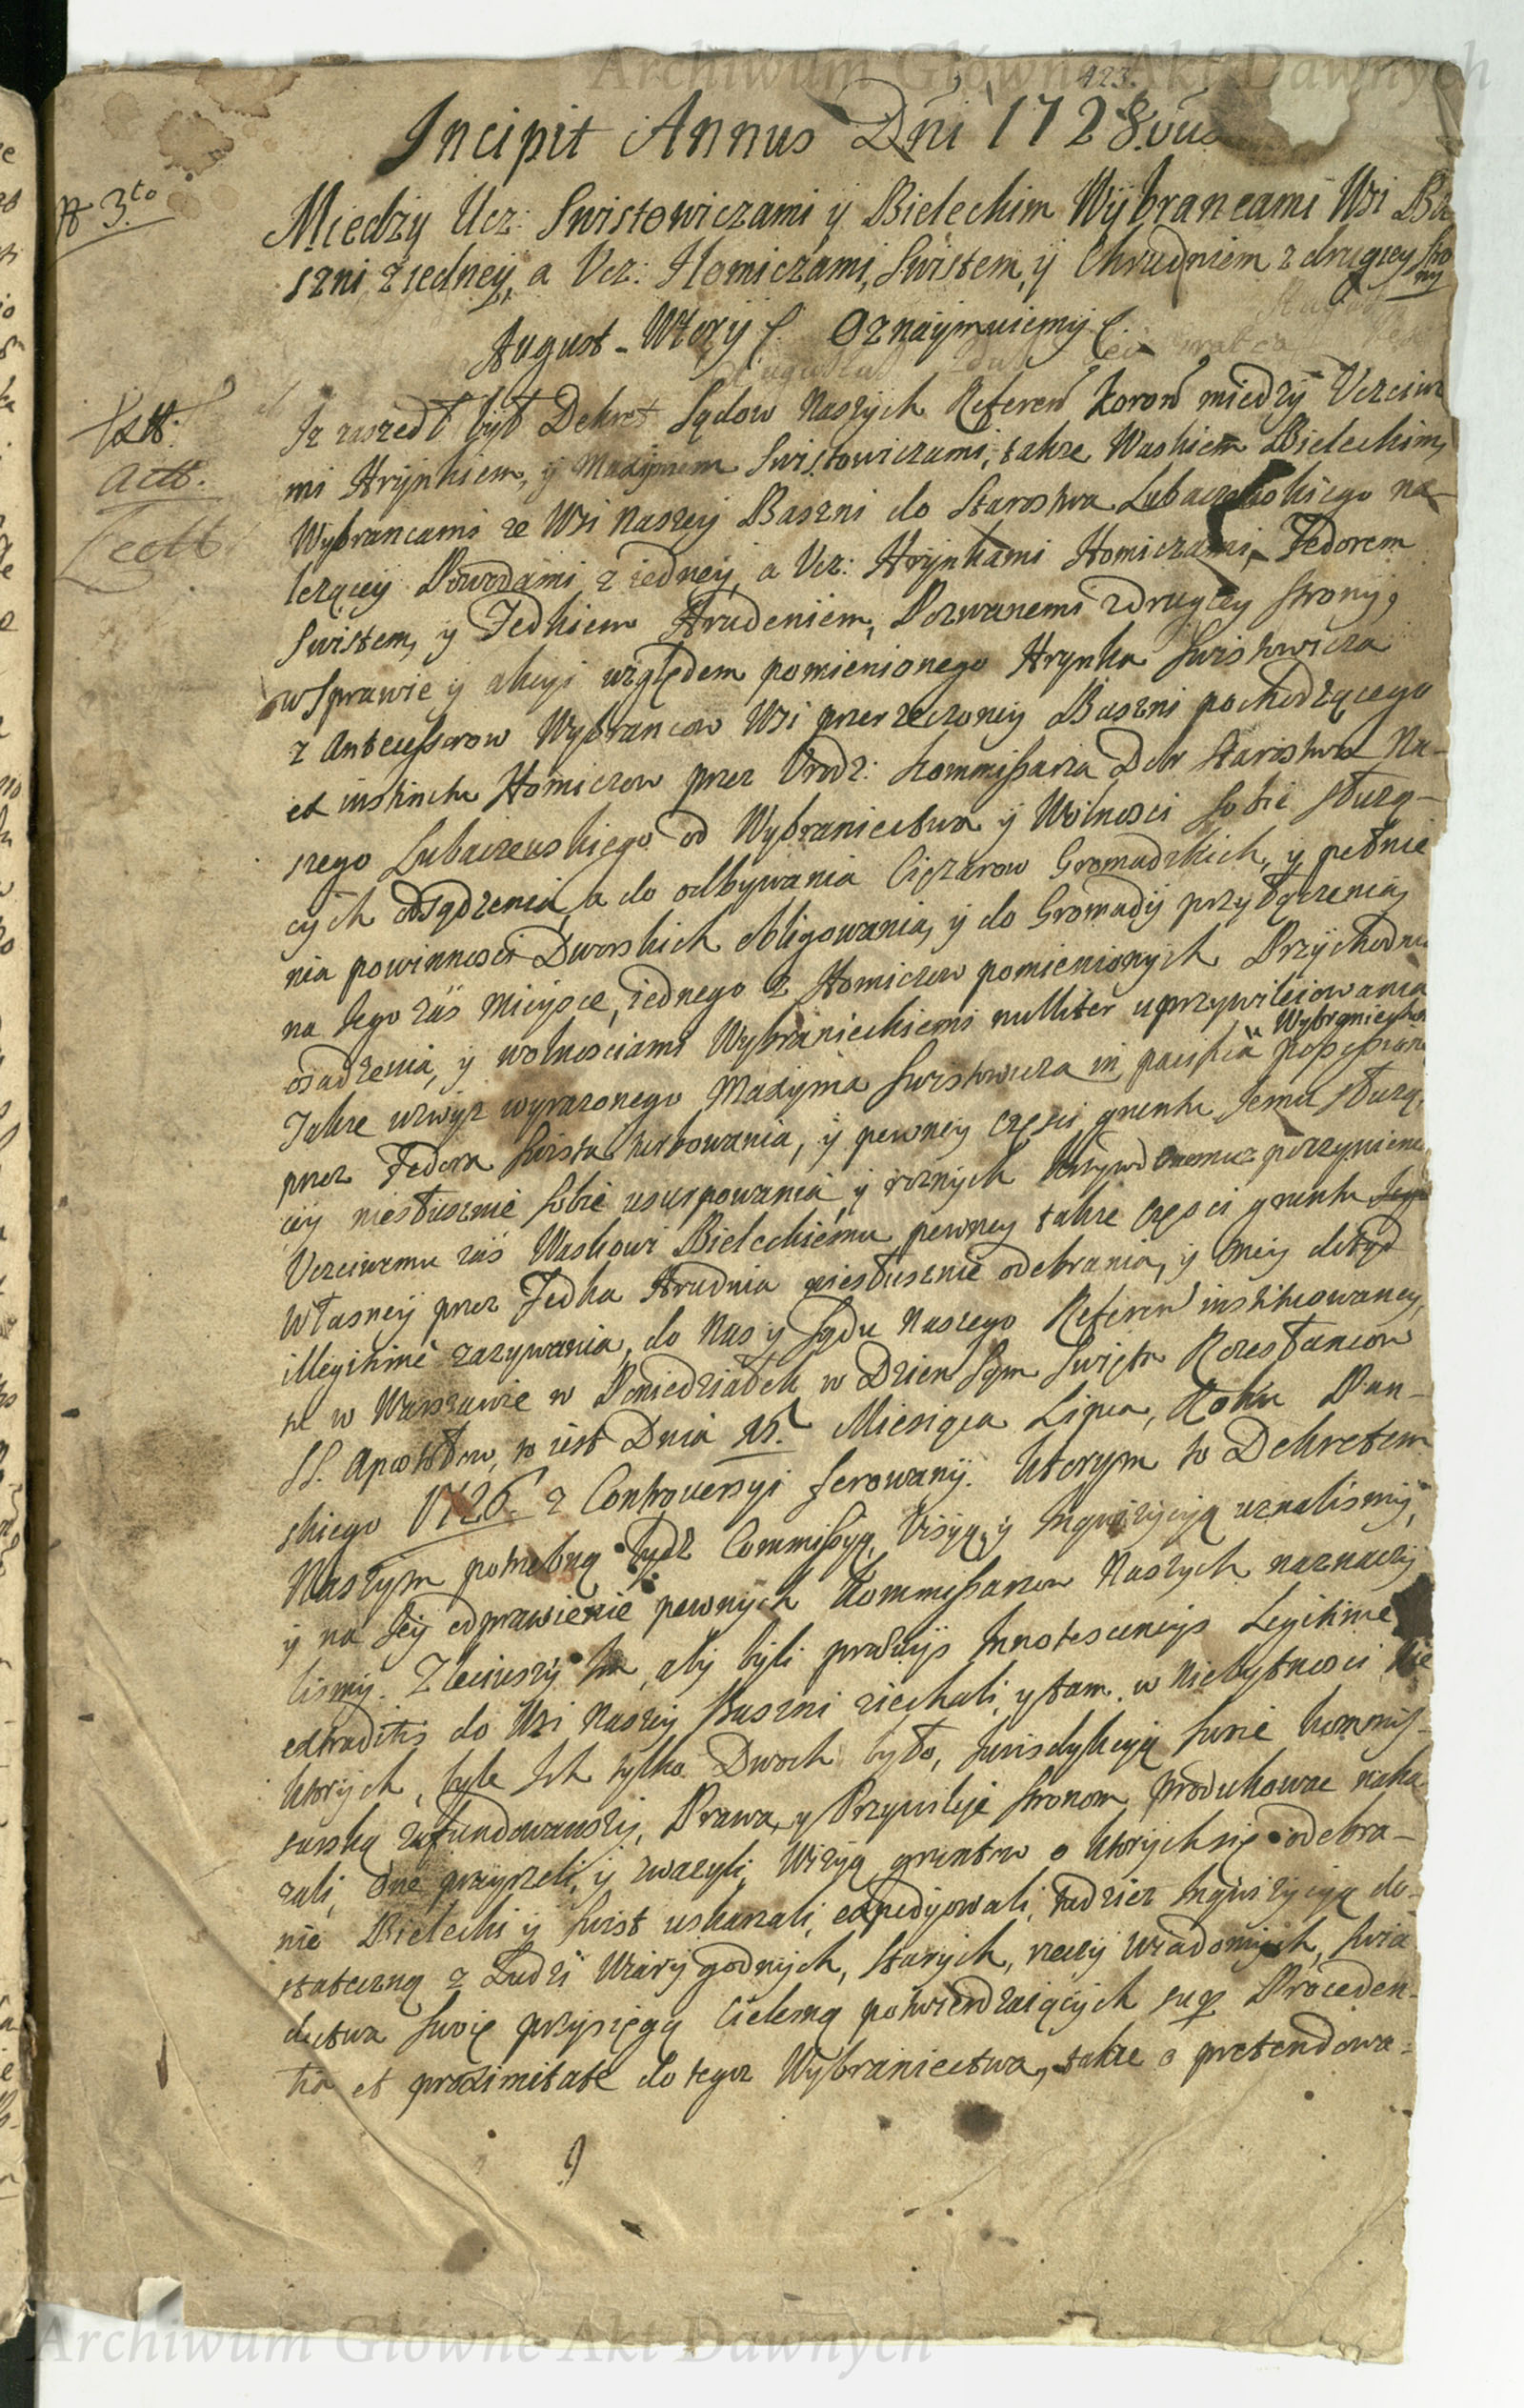 423.
Incipit Annus Dni 1728vus
N 3to
Miedzy Ucz: Swistowiczami y Bielechim Wybrancami Wsi Ba
szni z iedney, a Vcz: Homiczami, Swistem, y Chrudniem z drugiey stro
ny
August Wtory f. Oznaymuiemy f.
Iz zaszedł był Dekret Sądow Naszych Referen Koron miedzy Vczciwe
mi Hrynkiem, y Maxymem Swistowiczami, takze Waskiem Bielechim,
actt.
Wybrancami ze Wsi Naszey Baszni do Starostwa Lubaczewskiego na-
lezącey Powodami z iedney, a Vcz: Hrynkami Homiczami, Fedorem
Swistem, y Fedkiem Hrudeniem, Pozwanemi z drugiey strony,
w Sprawie y akcyi względem pomienionego Hrynka Swistowicza
z Antecessorow Wybrancow Wsi przerzeczoney Baszni pochodzącego
ex instinctu Homiczow przez Urodz: Kommissarza Dobr Starostwa Na-
szego Lubaczewskiego od Wybraniectwa y Wolnosci sobie służą-
cych odsądzenia, a do odbywania Ciężarow Gromadzkich, y pełnie
nia powinnosci Dworskich obligowania, y do Gromady przyłączenia,
na Jego zaś Mieysce, iednego z Homiczow pomienionych Przychodnia
osadzenia, y wolnosciami Wybranieckiemi nulliter uprzywileiowania
Wybraniectwa
Takze wzwyż wyrazonego Maxyma Swistowicza in pacifica possessione
przez Fedora Swista turbowania, y pewney częsci gruntu Jemu służą
cey niesłusznie sobie usurpowania, y roznych krzywd onemuz poczynienia
Vczciwemu zaś Waskowi Bielechiemu, pewney takze częsci gruntu Jego
własney przez Fedka Hrudnia niesłusznie odebrania, y oney dotąd
illegitime zazywania, do Nas y Sądu Naszego Referen instituowaney,
tu w Warszawie w Poniedziałek w Dzien Sam Swięta Rozesłancow
SS. Apostołow, to iest Dnia 15. Miesiąca Lipca, Roku Pan-
skiego 1726 z Controuersyi ferowany. Ktorym to Dekretem
Naszym potrzebną bydz Commissyą, Visyą, y Inquizycyą uznalismy,
y na Jey odprawienie pewnych Kommissarzow Naszych naznaczy
lismy. Zleciwszy Im, aby byli praeuijs Innotescencijs Legitime
extraditis do Wsi Naszey Baszni ziechali, y tam w niebytnosci nie
ktorych, byle Ich tylko Dwoch było, Jurisdykcyą swoie kommis-
sarską zafundowawszy, Prawa, y Przywileje stronom produkowac naka
zali, one przyrzeli, y zwazyli, Wizyą gruntow o ktorych się odebra-
nie Bielecki y Swist uskarzali, expedyowali, tudziez Inquizycyą do-
stateczną z Ludzi Wiary godnych, starych, rzeczy wiadomych, Swia
dectwa swoie przysięgą Cielesną potwierdzaiących super Proceden-
tia et proximitate do tegoz Wybraniectwa, takze o pretendowa-